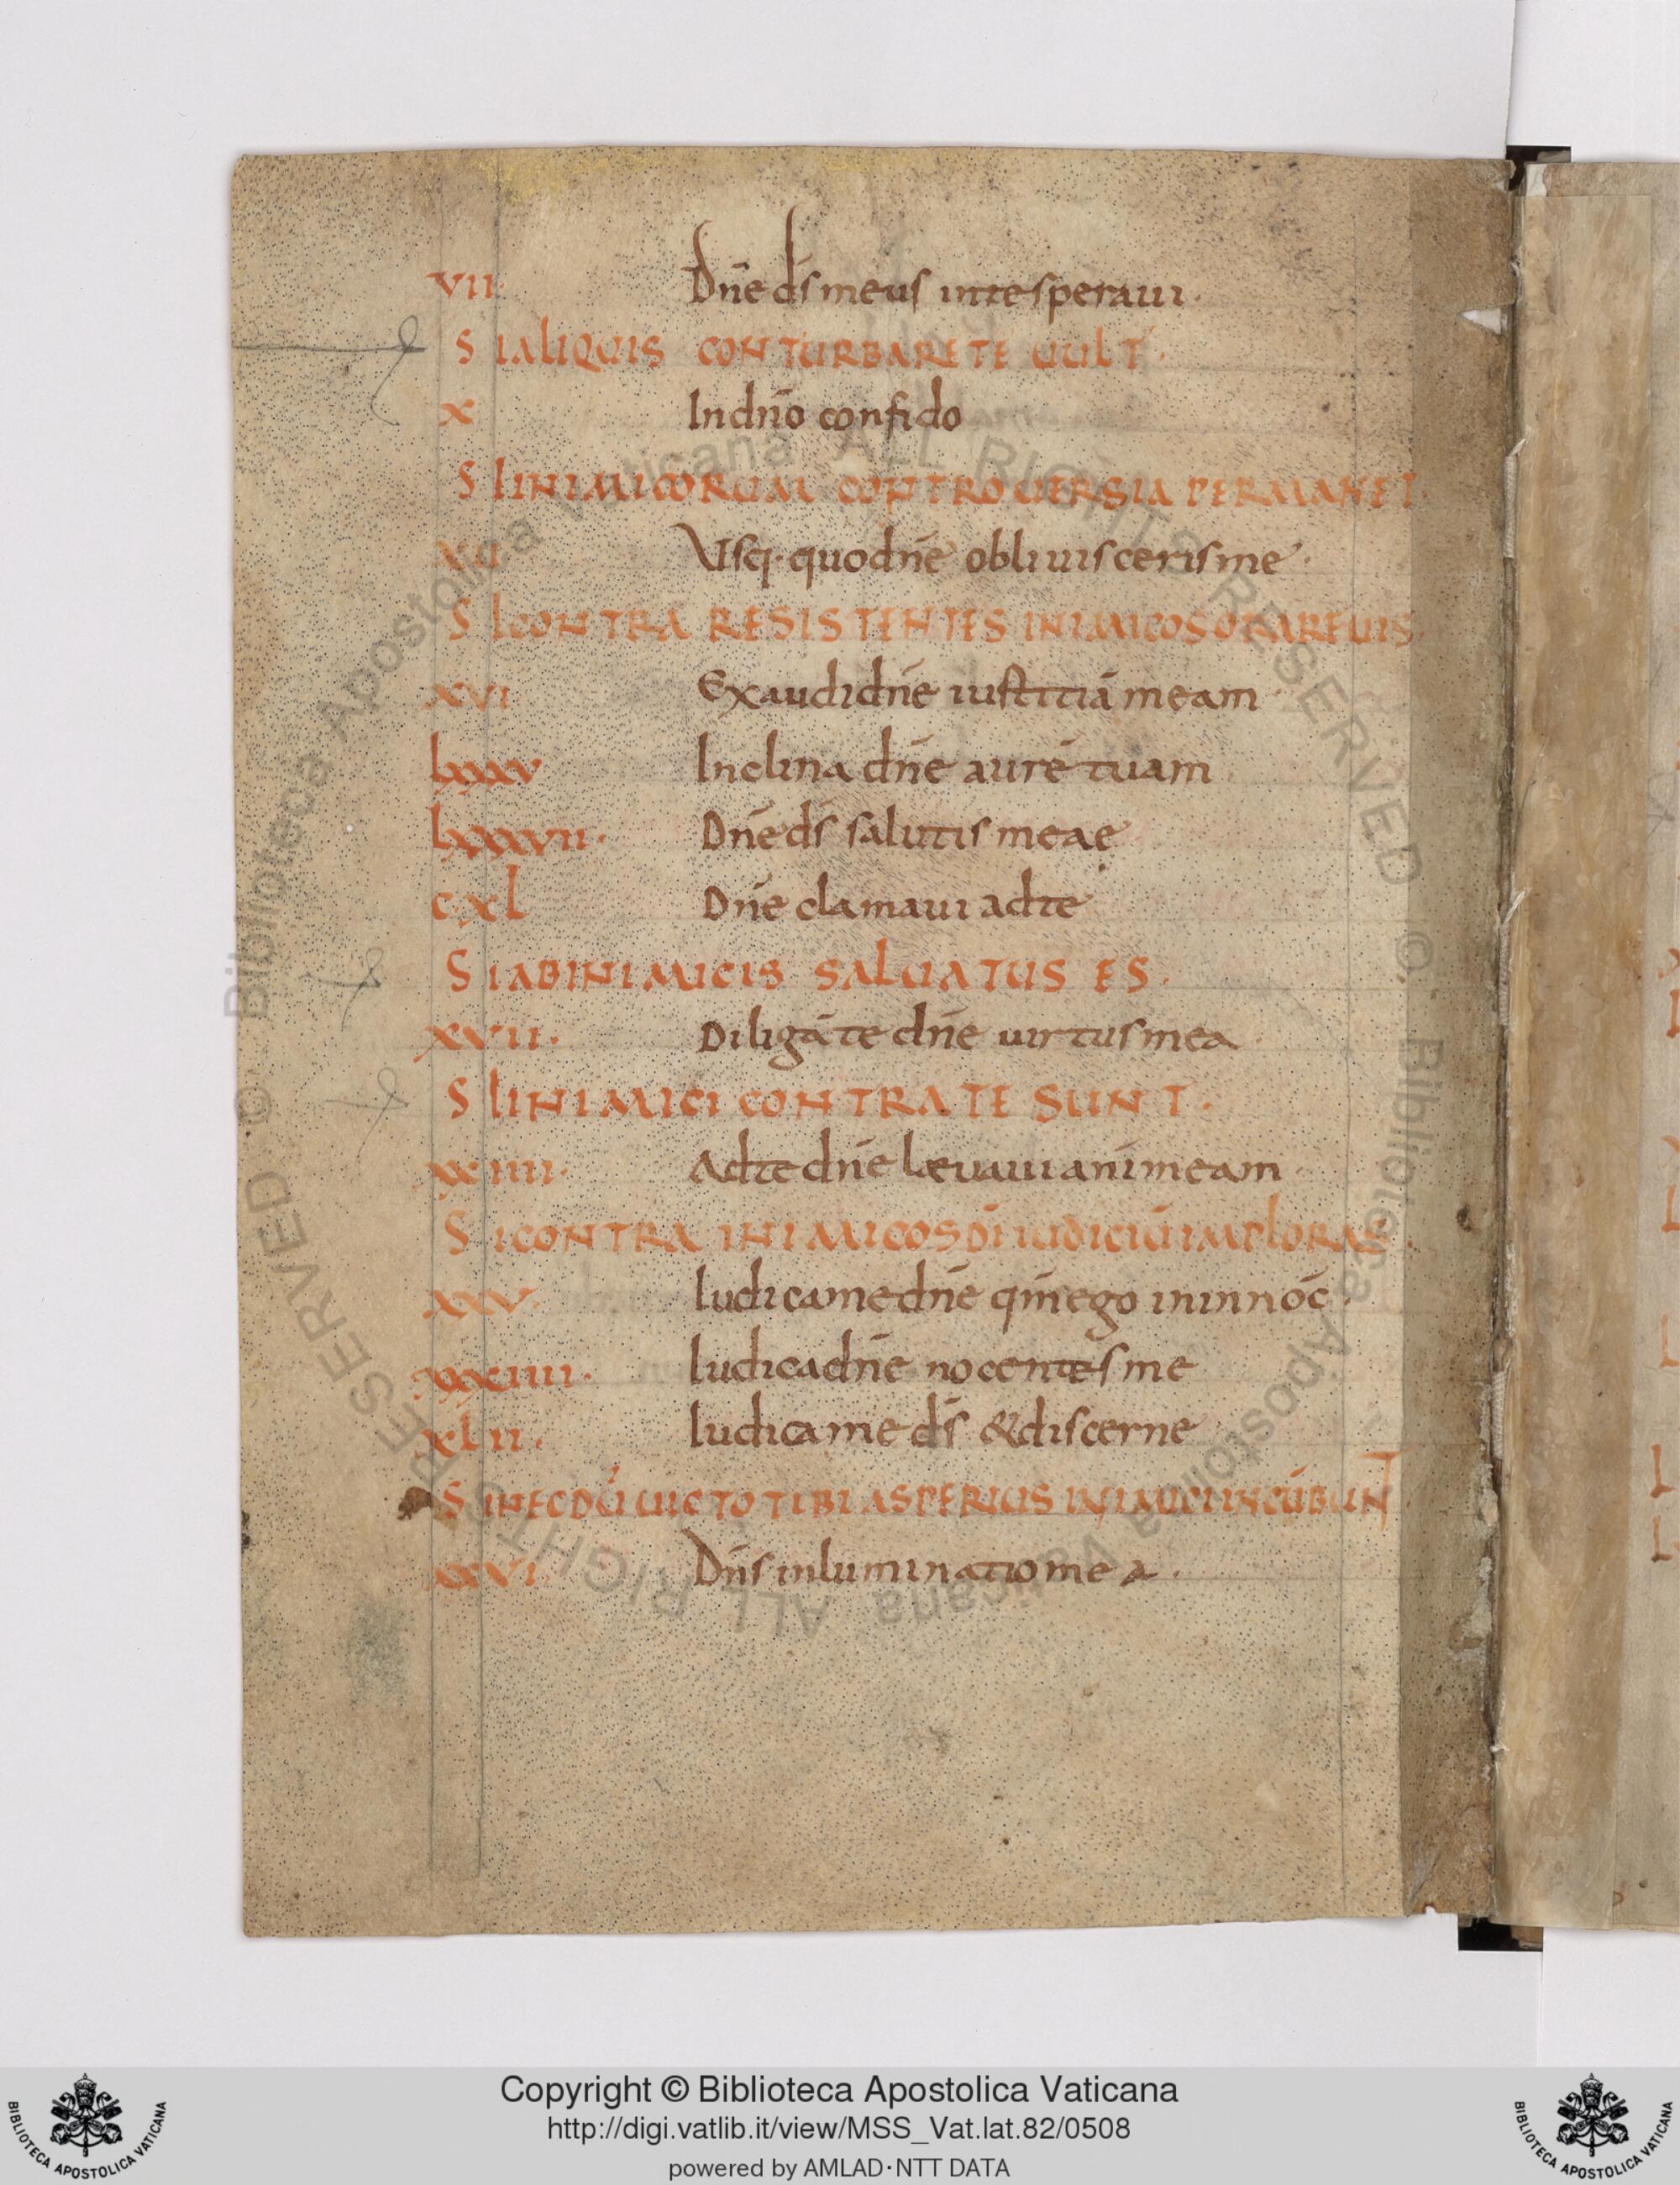 VII Dn̄e d̄s meus inte speraui.
SI ALIQUIS CONTURBARE TE UULT.
X In dn̄o confido
SI INIMICORUM CONTROUERSIA PERMANET
XII Usq· quo dn̄e obliuisceris me·
SI CONTRA RESISTENTES INIMICOS ORARE UIS.
XVI Exaudi dn̄e iustitiā meam
lxxxv Inclina dn̄e aurē tuam
lxxxvii. Dn̄e d̄s salutis meae
cxl Dn̄e clamaui ad te
SI AB INIMICIS SALUATUS ES.
XVII. Diligā te dn̄e uirtus mea.
SI INIMICI CONTRA TE SUNT.
xxiiii. Ad te dn̄e læuaui anī meam
SI CONTRA INIMICOS DĪ IUDICIŪ IMPLORAS
xxv. Iudica me dn̄e qm̄ ego in innōc.
xxxiiii. Iudica dn̄e nocentes me
xlii. Iudica me d̄s & discerne
SI NECDŪ UICTO TIBI ASPERIUS INIMICI INCŪBUNT
xxvi. Dn̄s inluminatio mea.
Copyright © Biblioteca Apostolica Vaticana
http://digi.vatlib.it/view/MSS_Vat.lat.82/0508
powered by AMLAD·NTT DATA
BIBLIOTECA APOSTOLICA VATICANA
BIBLIOTECA APOSTOLICA VATICANA
© Biblioteca Apostolica Vaticana ALL RIGHTS RESERVED © Biblioteca Apostolica Vaticana ALL RIGHTS RESERVED